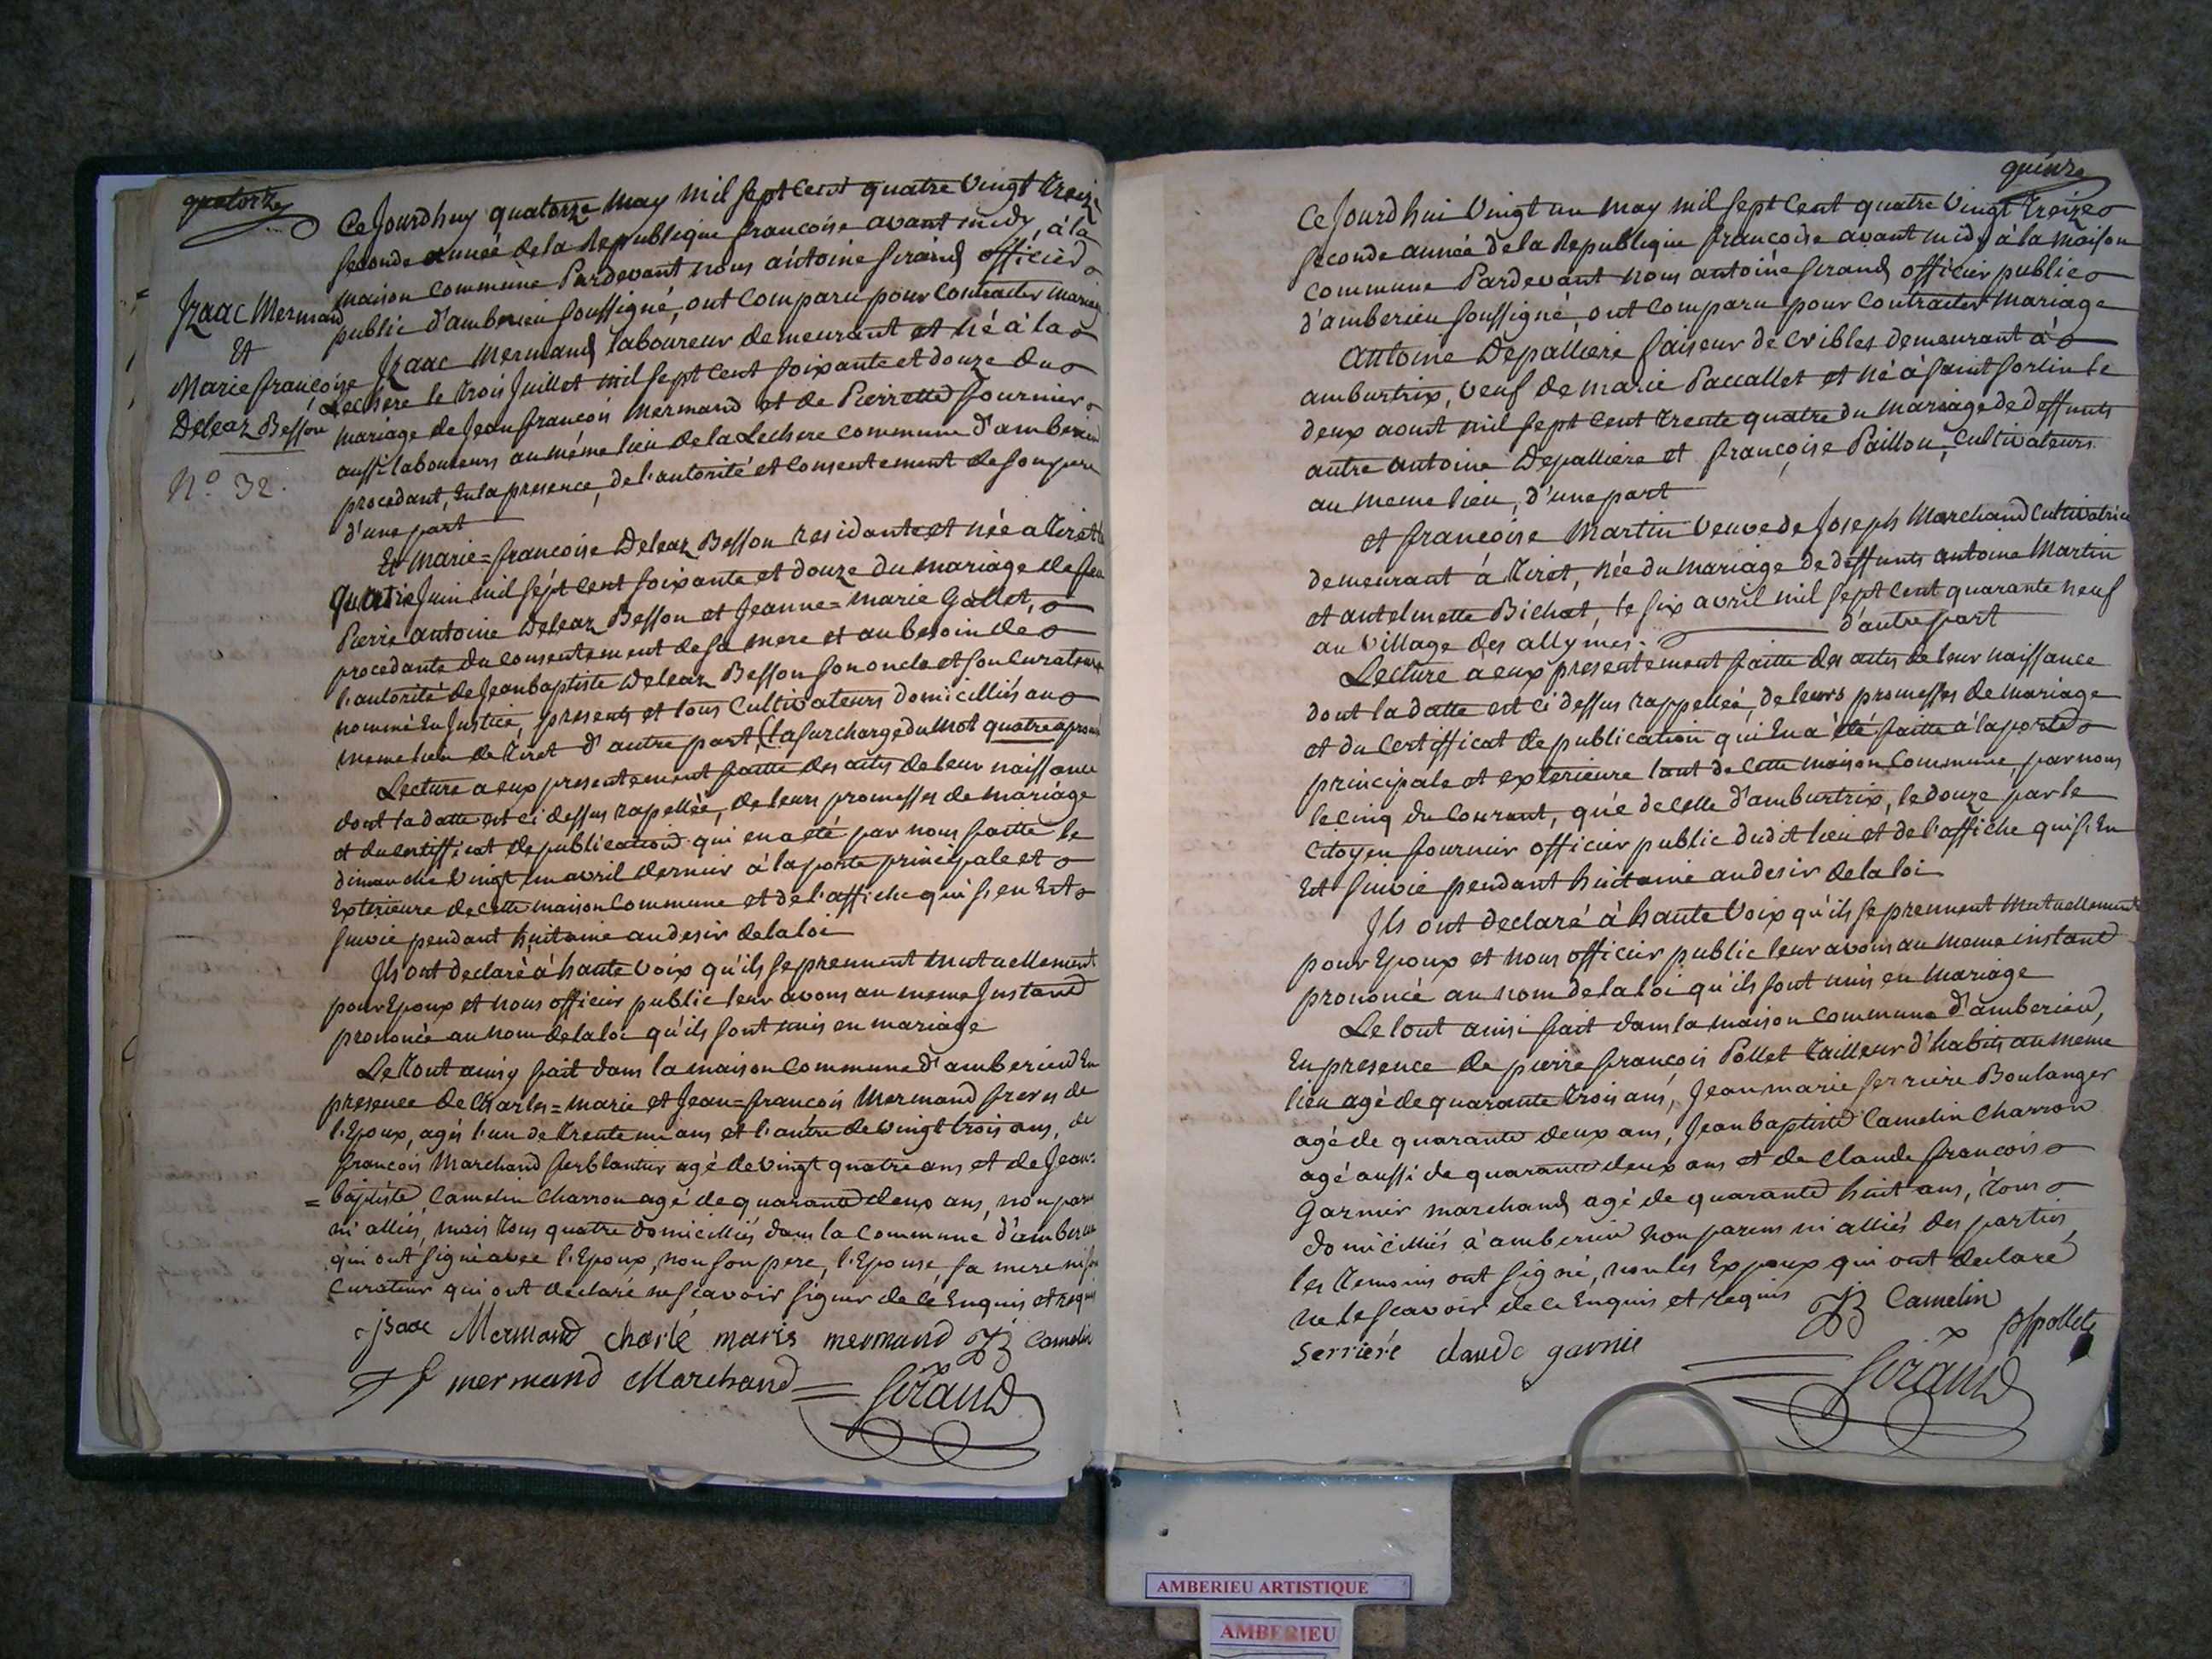 quatorze
Ce Jourdhuy quatorze may mil sept Cent quatre Vingt treize
seconde année de la Republique francoise avant midy, à la
maison Commune Pardevant nous antoine Sirand officier
public d'amberieu soussigné, ont Comparu pour Contracter mariage
Izaac Mermand
Et
Marie françoise
Deleaz Besson
N.o 32.
Izaac Mermand laboureur demeurant et né à la
Lechere le trois Juillet mil sept Cent soixante et douze du
mariage de Jean francois Mermand et de Pierrette fournier
aussi laboureurs au même lieu de la Lechere commune d'amberieu
procedant, En la presence, de l'autorité et Consentement de son pere
d'une part
Et Marie=francoise Deleaz Besson residante et née a Tiret le
quatre Juin mil sépt Cent soixante et douze du mariage de feu
Pierre antoine Deleaz Besson et Jeanne=marie Gallet,
procedante du Consentement de sa mere et au besoin de
l'autorité de Jean baptiste Deleaz Besson son oncle et son Curateur
nommé En Justice, presents et tous Cultivateurs domicilliés au
meme lieu de Tiret d'autre part (la surcharge du mot quatre aprouvé
Lecture a eux presentement faitte des actes de leur naissance
dont la datte est ci dessus rapellée, de leurs promesses de mariage
et du Certifficat de publication qui en a été par nous faitte le
dimanche Vingt un avril dernier à la porte principale et
Exterieure de cette maison Commune et de l'affiche qui s'en Est
suivie pendant huitaine au desir de la loi
Ils ont declaré à haute Voix qu'ils se prennent mutuellement
pour Epoux et nous officier public leur avons au meme Instant
prononcé au nom de la loi qu'ils sont unis en mariage
Le Tout ainsy fait dans la maison Commune d'amberieu En
presence de Charles=marie et Jean=francois Mermand freres de
l'Epoux, agés l'un de trente un ans et l'autre de Vingt trois ans, de
francois Marchand ferblantier agé de Vingt quatre ans et de Jean=
=baptiste Camelin Charron agé de quarante deux ans, non parens
ni alliés, mais tous quatre domicilliés dans la Commune d'amberieu
qui ont signé avec l'Epoux, non son pere, l'Epouse, sa mere ni son
Curateur qui ont declaré ne scavoir signer de ce Enquis et requis
isaac Mermand charle maris mermand JB Camelin
J f mermand Marchand Sirand
quinze
Ce Jourd hui Vingt un may mil sept Cent quatre Vingt Treize
seconde année de la Republique francoise avant midy à la maison
commune Pardevant nous antoine Sirand officier public
d'amberieu soussigné, ont Comparu pour Contracter mariage
Antoine Depalliere faiseur de Cribles demeurant à
amburtrix, Veuf de marie Paccallet et né à saint sorlin le
deux aout mil sept Cent trente quatre du mariage de deffunts
autre antoine Depalliere et françoise Paillou, Cultivateurs
au meme lieu, d'une part
et francoise Martin Veuve de Joseph Marchand Cultivatrice
demeurant à Tiret, née du mariage de deffunts antoine Martin
et antelmette Bichat, le six avril mil sept Cent quarante neuf
au Village des allymes. d'autre part
Lecture a eux presentement faitte des actes de leur naissance
dont la datte est ci dessus rappellée, de leurs promesses de mariage
et du Certifficat de publication qui En a été faitte à la porte
principale et exterieure tant de Cette maison Commune, par nous
le Cinq du Courant, que de Celle d'amburtrix, le douze par le
Citoyen fournier officier public dudit lieu et de l'affiche qui s'En
Est suivie pendant huitaine au desir de la loi
Ils ont declaré à haute Voix qu'ils se prennent mutuellement
pour Epoux et nous officier public leur avons au meme instant
prononcé au nom de la loi qu'ils sont unis en mariage
Le tout ainsi fait dans la maison Commune d'amberieu,
En presence de pierre françois Pollet Tailleur d'habits au meme
lieu agé de quarante trois ans, Jean marie serriere Boulanger
agé de quarante deux ans, Jean baptiste Camelin Charron
agé aussi de quarante deux ans et de Claude francois
Garnier marchand agé de quarante huit ans, tous
domicilliés à amberieu non parens ni alliés des parties
les temoins ont signé, non les Epoux qui ont declaré
ne le scavoir de ce Enquis et requis JB Camelin
serriere claude garnie ppollet
Sirand
AMBERIEU ARTISTIQUE
AMBERIEU